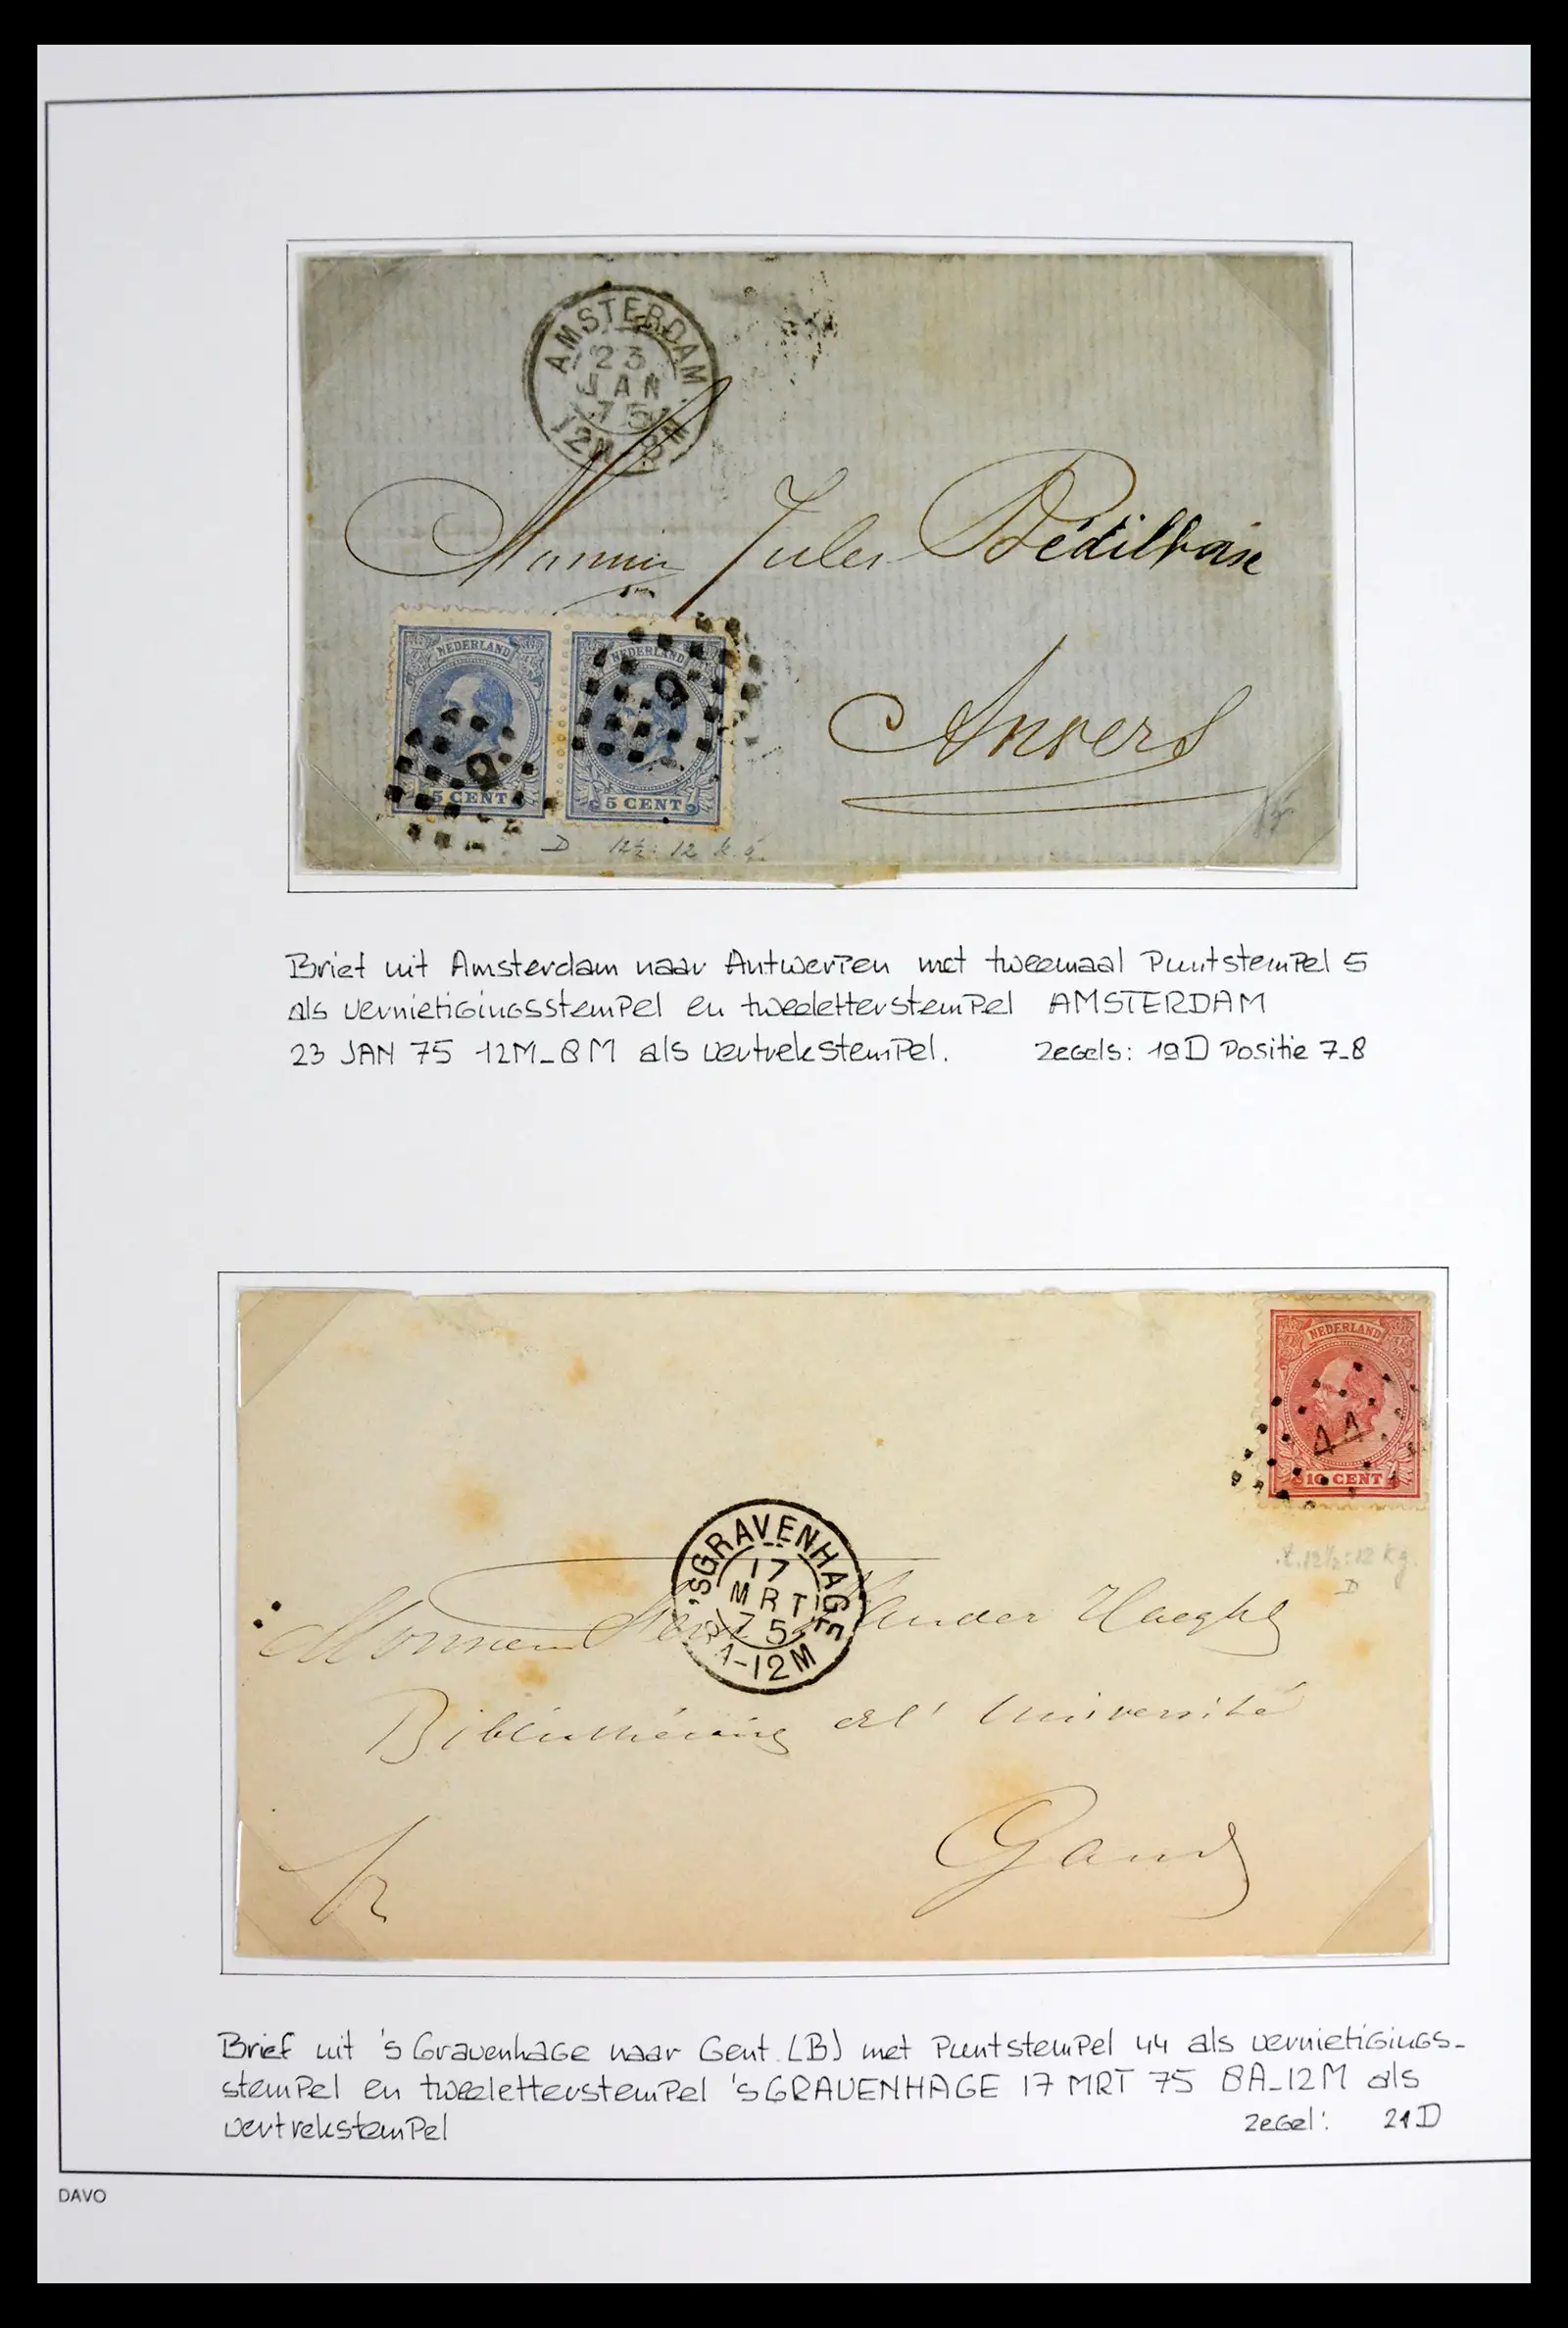 AMSTERDAM
23
JAN
75
12M-8M
Jules Bédilhoise
Anvers
NEDERLAND NEDERLAND
5 CENT 5 CENT
D 12½:12 k.g.
Brief uit Amsterdam naar Antwerpen met tweemaal Puntstempel 5
als vernietigingsstempel en tweeletterstempel AMSTERDAM
23 JAN 75 12M-8M als vertrekstempel. Zegels: 19D Positie 7-8
NEDERLAND
44
10 CENT
t.12½:12 kg.
D
'SGRAVENHAGE
17
MRT
75
8A-12M
Monsieur Vander Haeghe
Bibliothécaire de l'Université
Gand
Brief uit 's Gravenhage naar Gent (B) met Puntstempel 44 als vernietigings-
stempel en tweeletterstempel 'sGRAVENHAGE 17 MRT 75 8A-12M als
vertrekstempel Zegel: 21D
DAVO